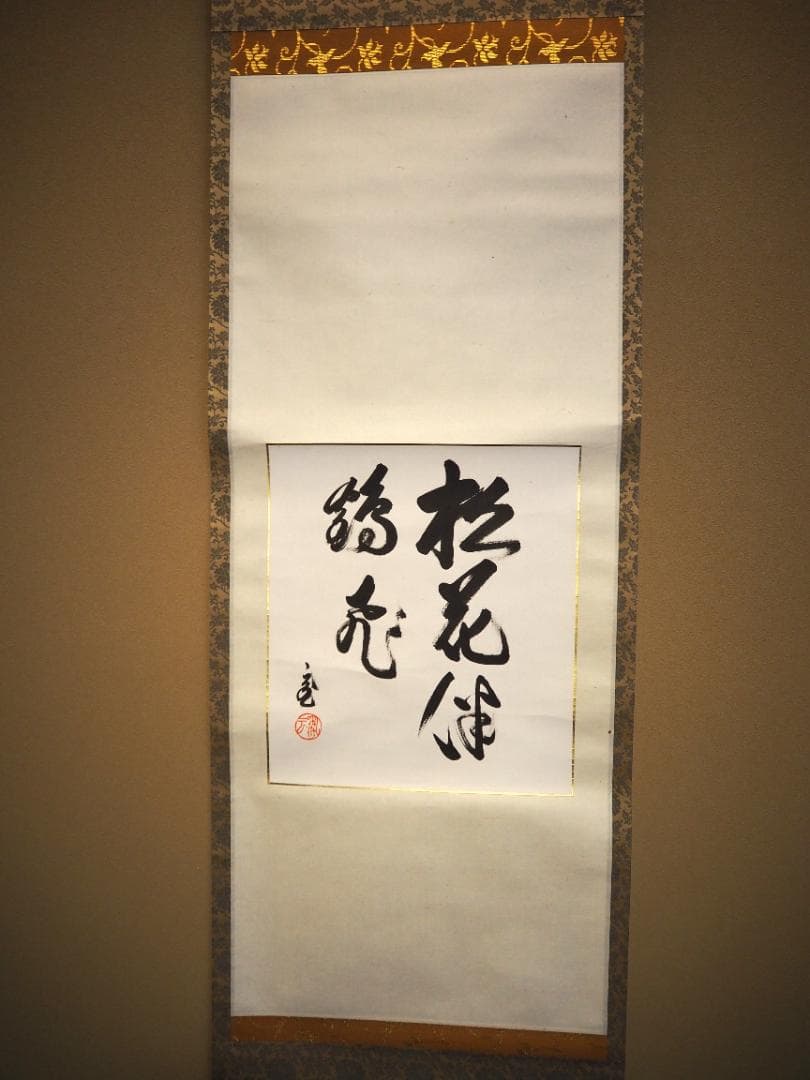 松花伴
鶴飛